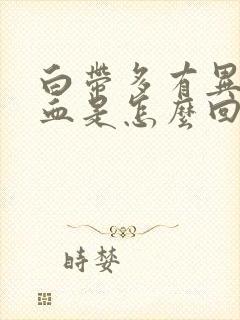 白帶多有異
血是怎麼回
時婪